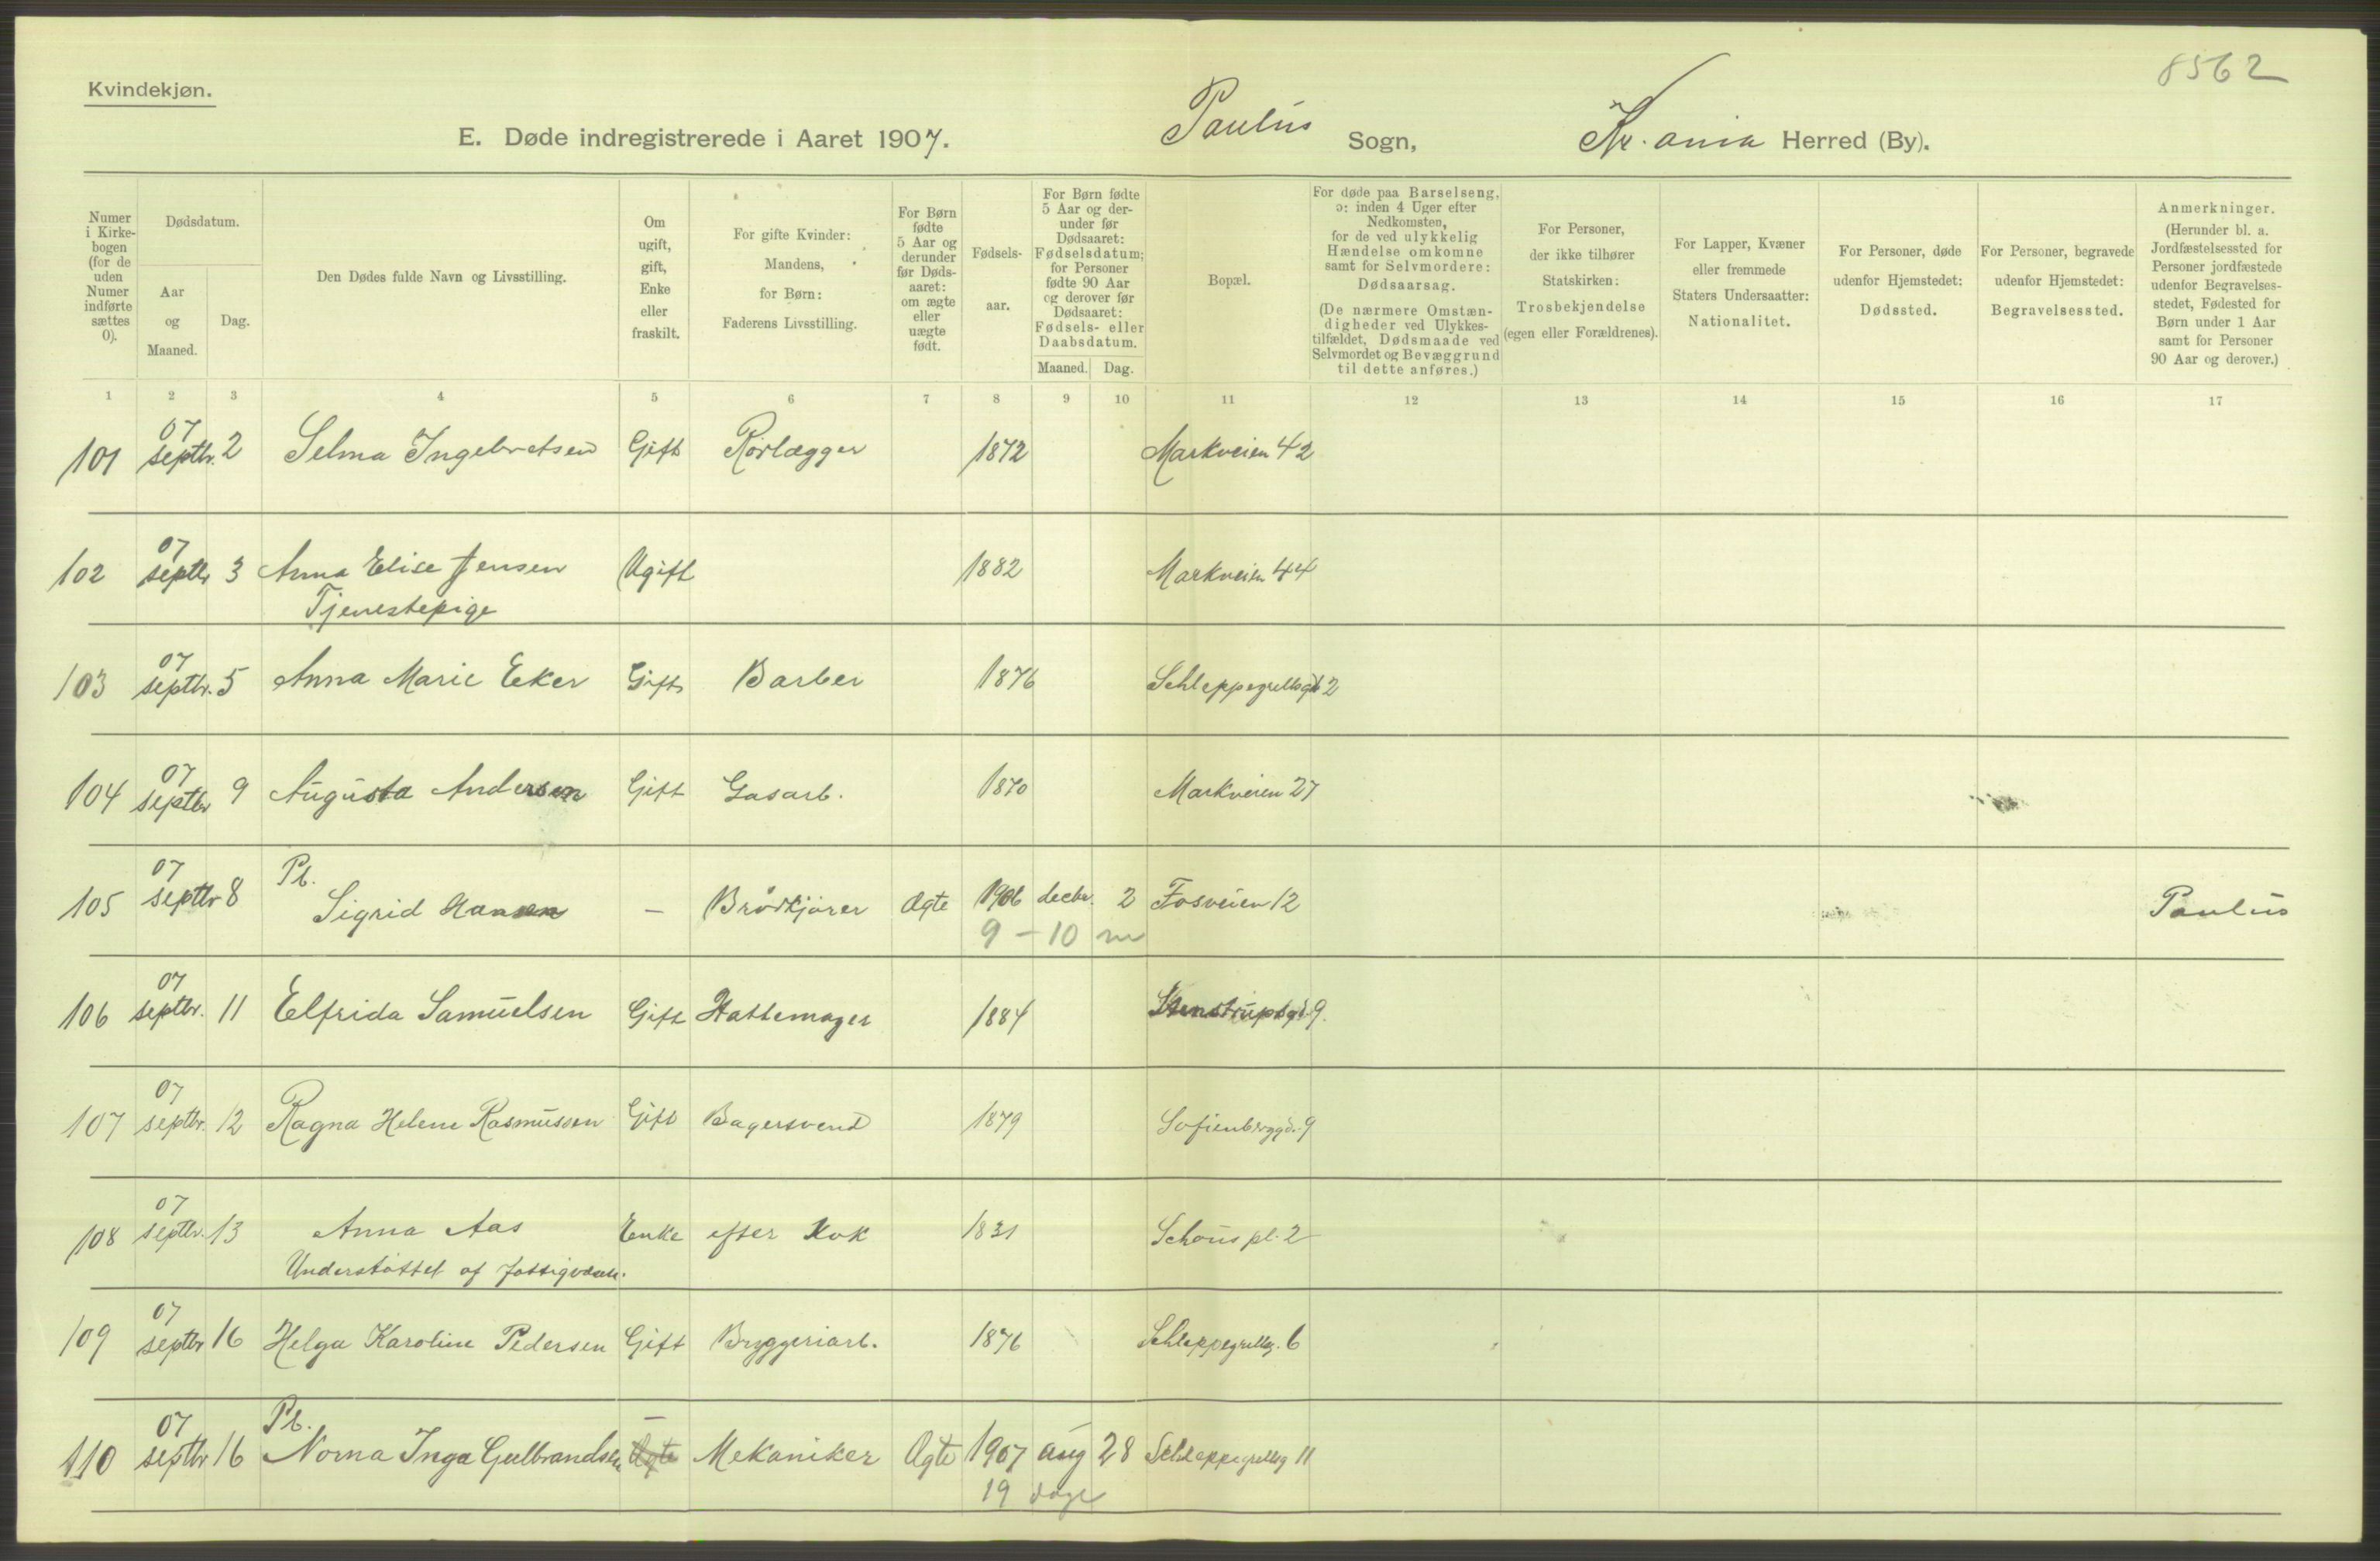 8562
Kvindekjøn.
E. Døde indregistrerede i Aaret 1907. Paulus Sogn, Kr.ania Herred (By).
Numer i Kirke-bogen (for de uden Numer indførte sættes 0).
Dødsdatum.
Aar og Maaned.
Dag.
Den Dødes fulde Navn og Livsstilling.
Om ugift, gift, Enke eller fraskilt.
For gifte Kvinder: Mandens, for Børn: Faderens Livsstilling.
For Børn fødte 5 Aar og derunder før Døds-aaret: om ægte eller uægte født.
Fødsels-aar.
For Børn fødte 5 Aar og der-under før Dødsaaret: Fødselsdatum; for Personer fødte 90 Aar og derover før Dødsaaret: Fødsels- eller Daabsdatum.
Maaned. Dag.
Bopæl.
For døde paa Barselseng, ɔ: inden 4 Uger efter Nedkomsten, for de ved ulykkelig Hændelse omkomne samt for Selvmordere: Dødsaarsag.
(De nærmere Omstæn-digheder ved Ulykkes-tilfældet, Dødsmaade ved Selvmordet og Bevæggrund til dette anføres.)
For Personer, der ikke tilhører Statskirken: Trosbekjendelse (egen eller Forældrenes).
For Lapper, Kvæner eller fremmede Staters Undersaatter: Nationalitet.
For Personer, døde udenfor Hjemstedet: Dødssted.
For Personer, begravede udenfor Hjemstedet: Begravelsessted.
Anmerkninger. (Herunder bl. a. Jordfæstelsessted for Personer jordfæstede udenfor Begravelses-stedet, Fødested for Børn under 1 Aar samt for Personer 90 Aar og derover.)
1 2 3 4 5 6 7 8 9 10 11 12 13 14 15 16 17
07
101 septbr. 2 Selma Ingebretsen Gift Rørlægger 1872 Markveien 42
07
102 septbr 3 Anna Elise Jensen Ugift 1882 Markveien 44
Tjenestepige
07
103 septbr. 5 Anna Marie Eker Gift Barber 1876 Schleppegrellsgd 2
07
104 septbr 9 Augusta Andersen Gift Gasarb. 1870 Markveien 27
07 Pb.
105 septbr 8 Sigrid Hansen — Brødkjører Ægte 1906 decbr. 2 Fosveien 12 Paulus
9 – 10 m
07
106 septbr. 11 Elfrida Samuelsen Gift Hattemager 1884 Stenstrupsgd. 9.
07
107 septbr. 12 Ragna Helene Rasmussen Gift Bagersvend 1879 Sofienberggd. 9
07
108 septbr. 13 Anna Aas Enke efter Kok 1831 Schous pl. 2
Understøttet af fattigvæsen.
07
109 septbr 16 Helga Karoline Pedersen Gift Bryggeriarb. 1876 Schleppegrellsg. 6
07 Pb. —
110 septbr 16 Norna Inga Gulbrandsen Ægte Mekaniker Ægte 1907 aug 28 Schleppegrellsg 11
19 dage